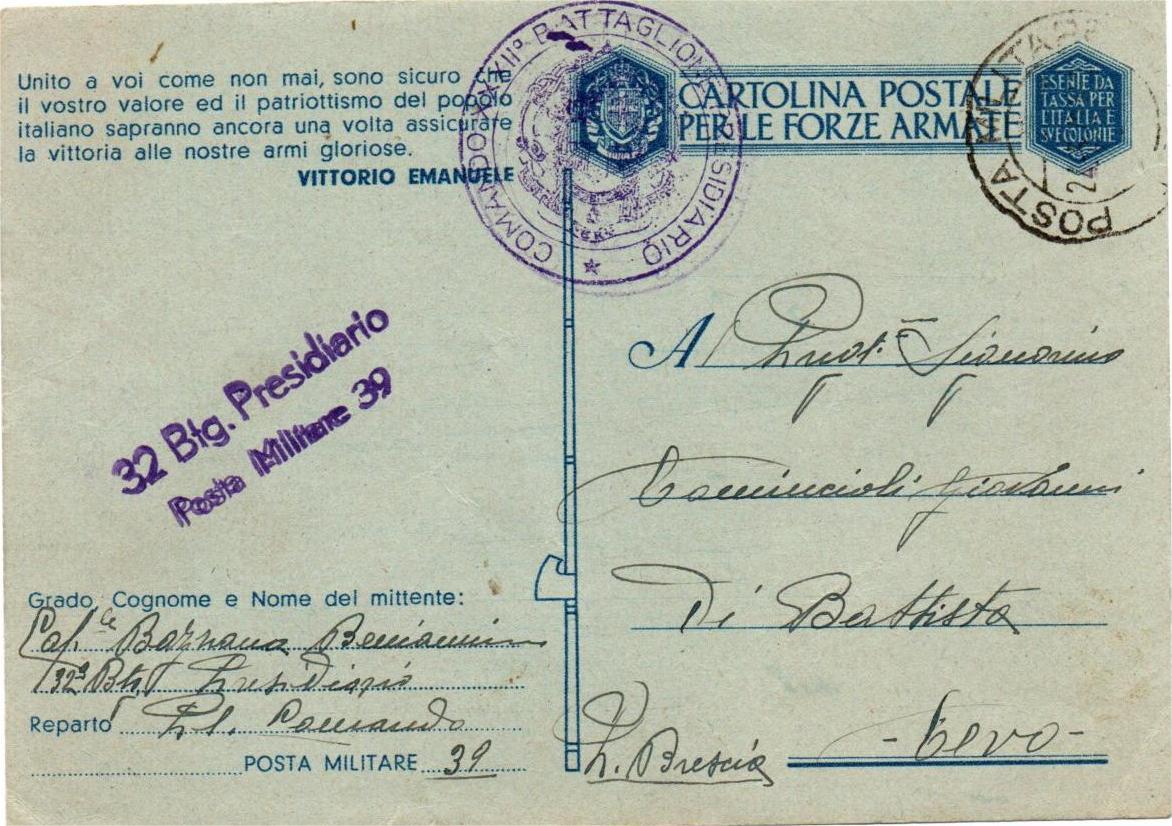 Unito a voi come non mai, sono sicuro che
il vostro valore ed il patriottismo del popolo
italiano sapranno ancora una volta assicurare
la vittoria alle nostre armi gloriose.
VITTORIO EMANUELE
COMANDO XXXII° BATTAGLIONE PRESIDIARIO
CARTOLINA POSTALE
PER LE FORZE ARMATE
ESENTE DA
TASSA PER
L'ITALIA E
SUE COLONIE
POSTA MILITARE
32 Btg. Presidiario
Posta Militare 39
A
Giovanni
Di Battista
- Bevo -
P. Brescia
Grado, Cognome e Nome del mittente:
Cap.le Beniamino
32° Btg Presidiario
Reparto Pl. Comando
POSTA MILITARE 39